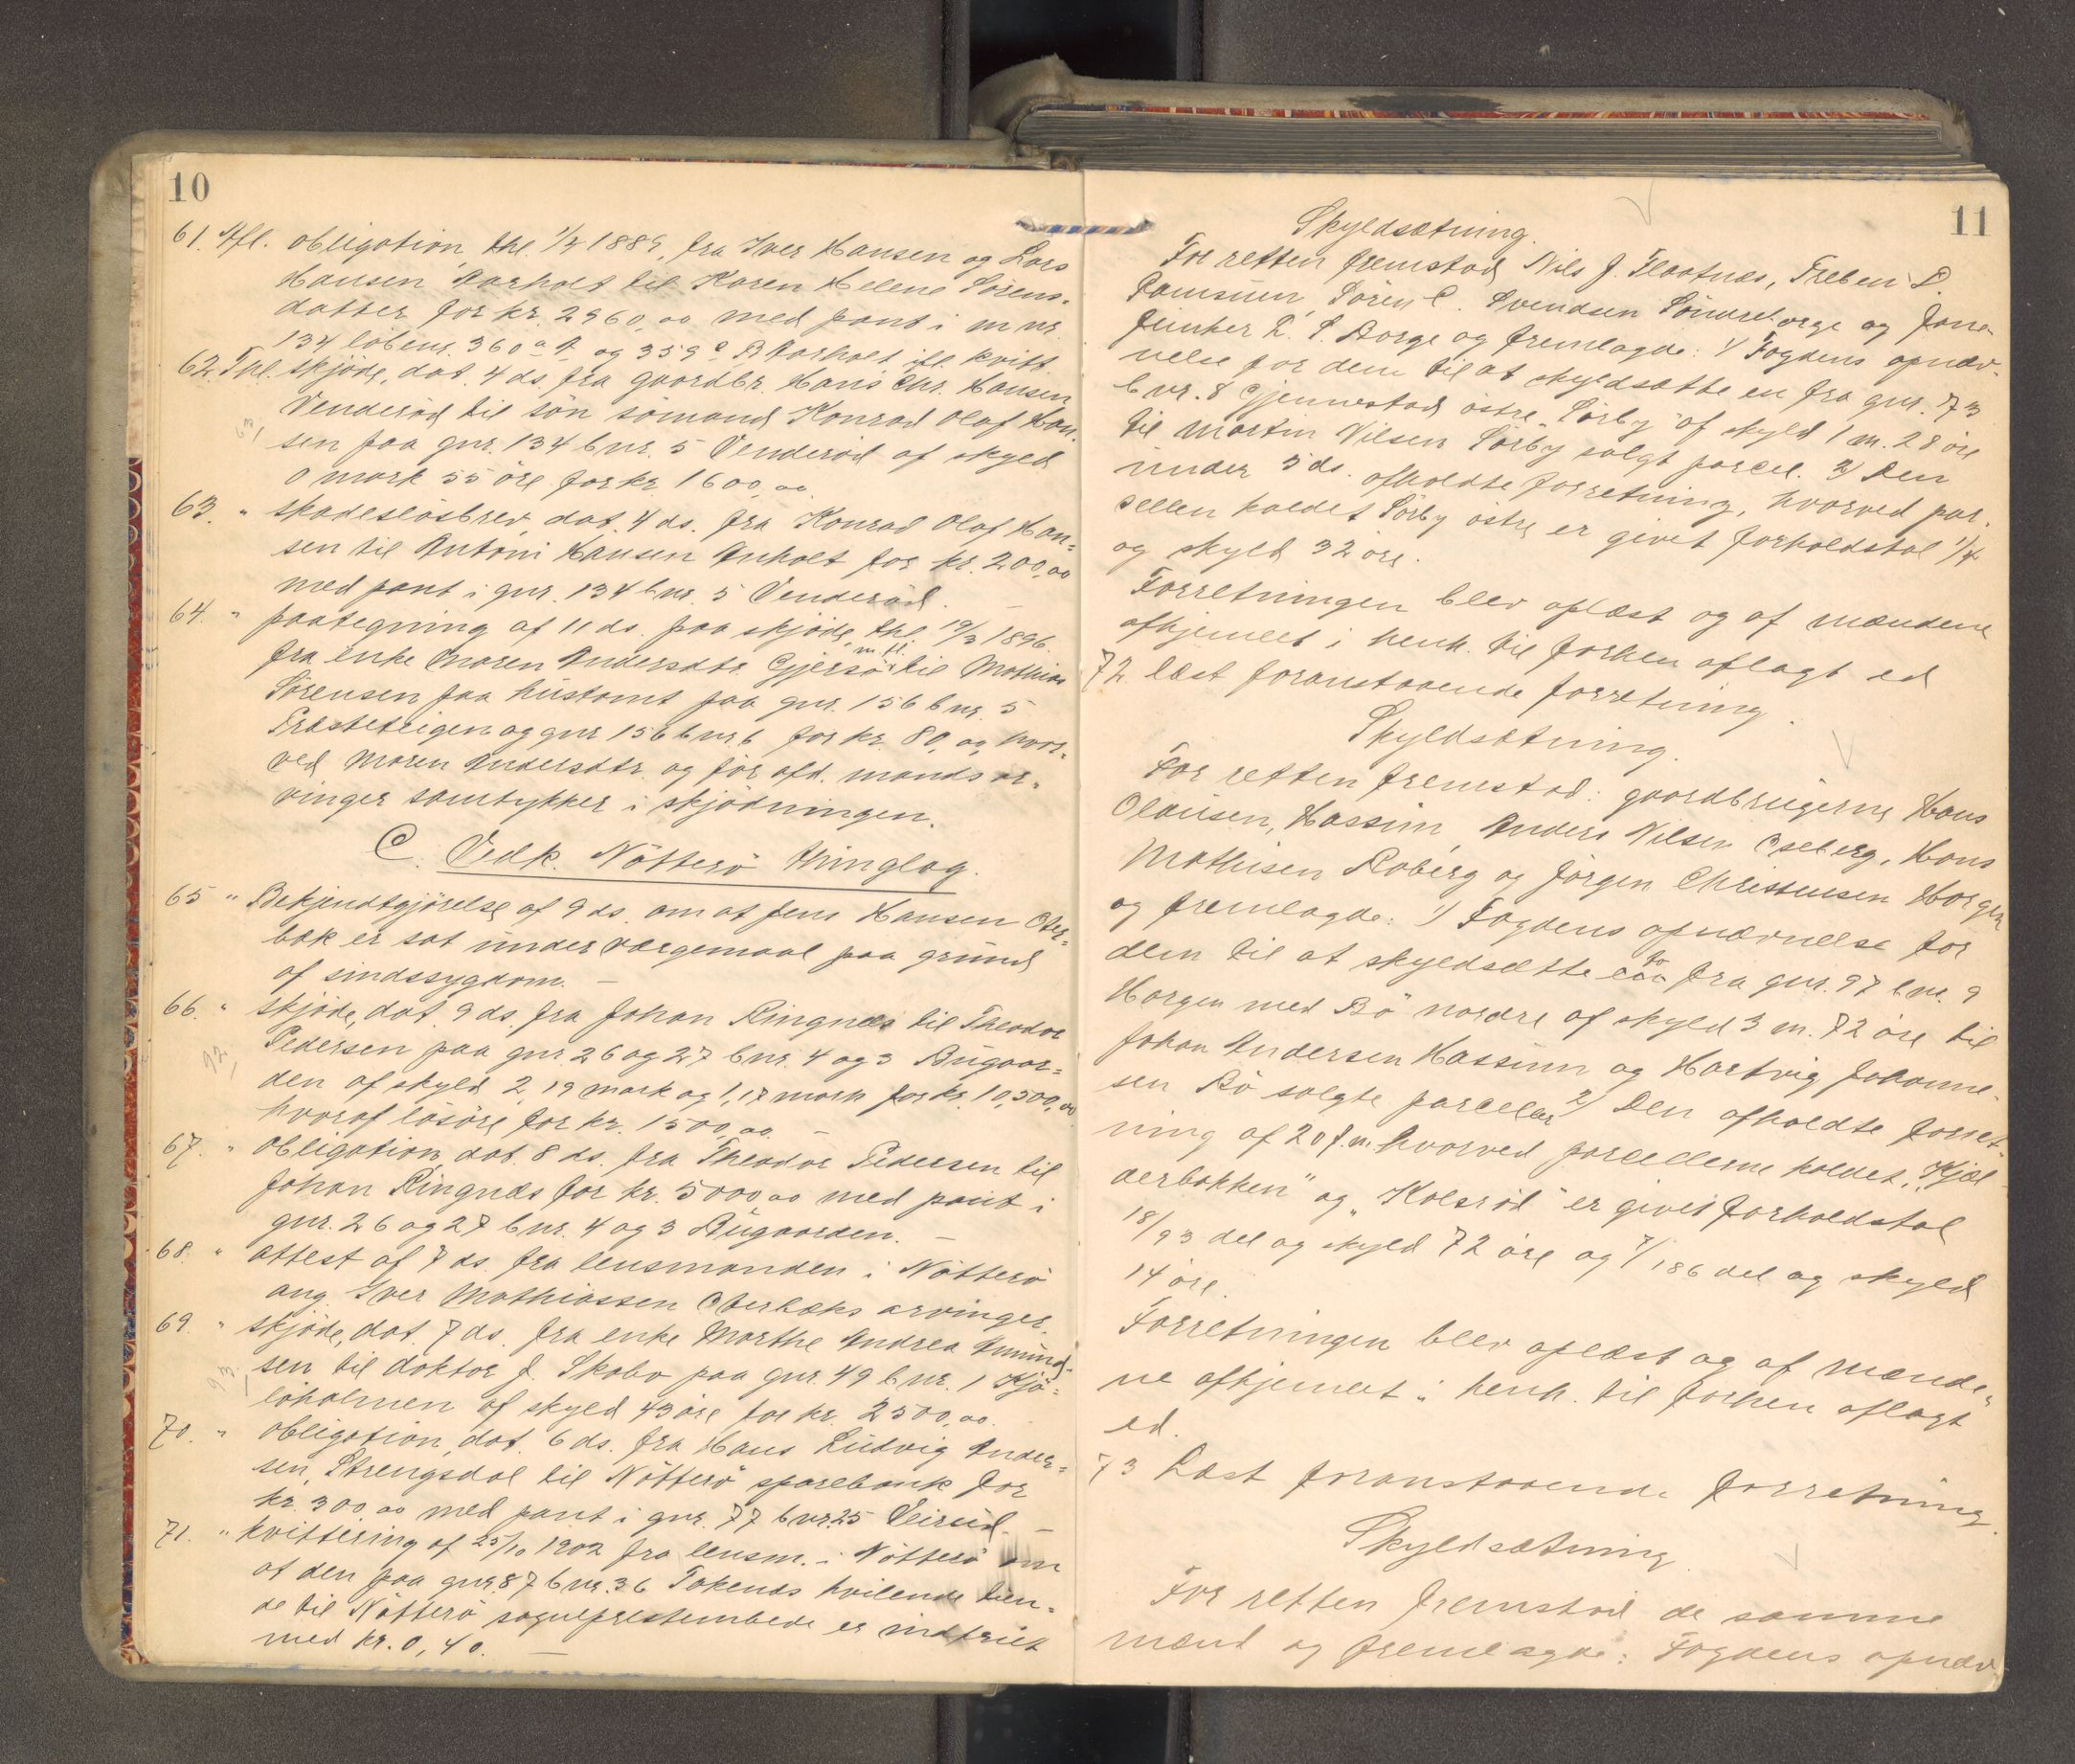 10
61. Afl. obligation, thl. 1/7 1889, fra Iver Hansen og Lars
Hansen Aarholt til Karen Helene Sørens-
datter for kr. 2960,00 med pant i m nr.
134 löbenr. 360 a A og 359 c B Aarholt ifl. kvitt.
62. Tgl. skjöde, dat. 4 ds. fra gaardbr. Hans Chr. Hansen
Venderöd til sön sömand Konrad Olaf Han-
sen paa gnr. 134 bnr. 5 Venderöd af skyld
0 mark 55 öre for kr 1600,00.
63. " skadeslösbrev, dat. 4 ds. fra Konrad Olaf Han-
sen til Antoni Hansen Anholt for kr. 200,00
med pant i gnr. 134 bnr. 5 Venderöd. —
64. " paategning af 11 ds. paa skjöde, thl. 19/3 1896
fra enke Maren Andersdtr. Gjersö m. fl. til Mathias
Sörensen paa hustomt paa gnr. 156 bnr. 5
Præsteteigen og gnr 156 bnr 6 for kr. 80, og hvor-
ved Maren Andersdtr. og for afd. mands ar-
vinger samtykker i skjödningen.
C. Vedk. Nötterö thinglag.
65 " Bekjendtgjörelse af 9 ds. om at Jens Hansen Oter-
bæk er sat under værgemaal paa grund
af sindssygdom. —
66. " skjöde, dat. 9 ds. fra Johan Ringnæs til Theodor
Pedersen paa gnr. 26 og 27 bnr. 4 og 3 Bugaar-
den af skyld 2,19 mark og 1,17 mark for kr. 10,500,00
hvoraf lösöre for kr. 1500,00. —
67. " obligation, dat. 8 ds. fra Theodor Pedersen til
Johan Ringnæs for kr. 5000,00 med pant i
gnr. 26 og 27 bnr. 4 og 3 Bugaarden. —
68. " attest af 7 ds. fra lensmanden i Nötterö
ang. Iver Mathiassen Oterbæks arvinger.
69. " skjöde, dat. 7 ds. fra enke Marthe Andrea Amund-
sen til doktor J. Skabo paa gnr. 49 bnr. 1 Kjö-
löholmen af skyld 43 öre for kr. 2500,00. —
70. " obligation, dat. 6 ds. fra Hans Ludvig Ander-
sen, Strengsdal til Nötterö sparebank for
kr. 300,00 med pant i gnr. 77 bnr. 25 Veirud. —
71. " kvittering af 25/10 1902 fra lensm. i Nötterö om
at den paa gnr. 87 bnr. 36 Tokenæs hvilende tien-
de til Nötterö sogneprestembede er indfriet
med kr. 0,40. —
11
Skyldsætning.
For retten fremstod Nils J. Flaatnes, Preben P.
Ramsum, Sören C. Svendsen Söndreborge og Jone
Junker L. S. Borge og fremlagde: 1/ Fogdens opnæv-
nelse for dem til at skyldsætte en fra gnr. 73
bnr. 8 Gjennestad östre "Sörby" af skyld 1 m. 28 öre
til Martin Nilsen Sörby solgt parcel. 2/ Den
under 5 ds. afholdte forretning, hvorved par-
cellen kaldet Sörby östre er givet forholdstal 1/4
og skyld 32 öre.
Forretningen blev oplæst og af mændene
afhjemlet i henh. til forhen aflagt ed
72. læst foranstaaende forretning.
Skyldsætning.
For retten fremstod: gaardbrugerne Hans
Olausen, Hassum, Anders Nilsen Oseberg, Hans
Mathisen Roberg og Jörgen Christensen Horgen
og fremlagde: 1/ Fogdens opnævnelse for
dem til at skyldsætte to fra gnr. 97 bnr. 9
Horgen med Bö nordre af skyld 3 m. 72 öre til
Johan Andersen Hassum og Hartvig Johanne-
sen Bö solgte parceller 2/ Den afholdte forret-
ning af 20 f. m. hvorved parcellerne kaldet „Kjæl-
derbakken" og „Kolsröd" er givet forholdstal
18/93 del og skyld 72 öre og 7/186 del og skyld
14 öre.
Forretningen blev oplæst og af mænde-
ne afhjemlet i henh. til forhen aflagt
ed.
73 Læst foranstaaende forretning.
Skyldsætning
For retten fremstod de samme
mænd og fremlagde: Fogdens opnæv-